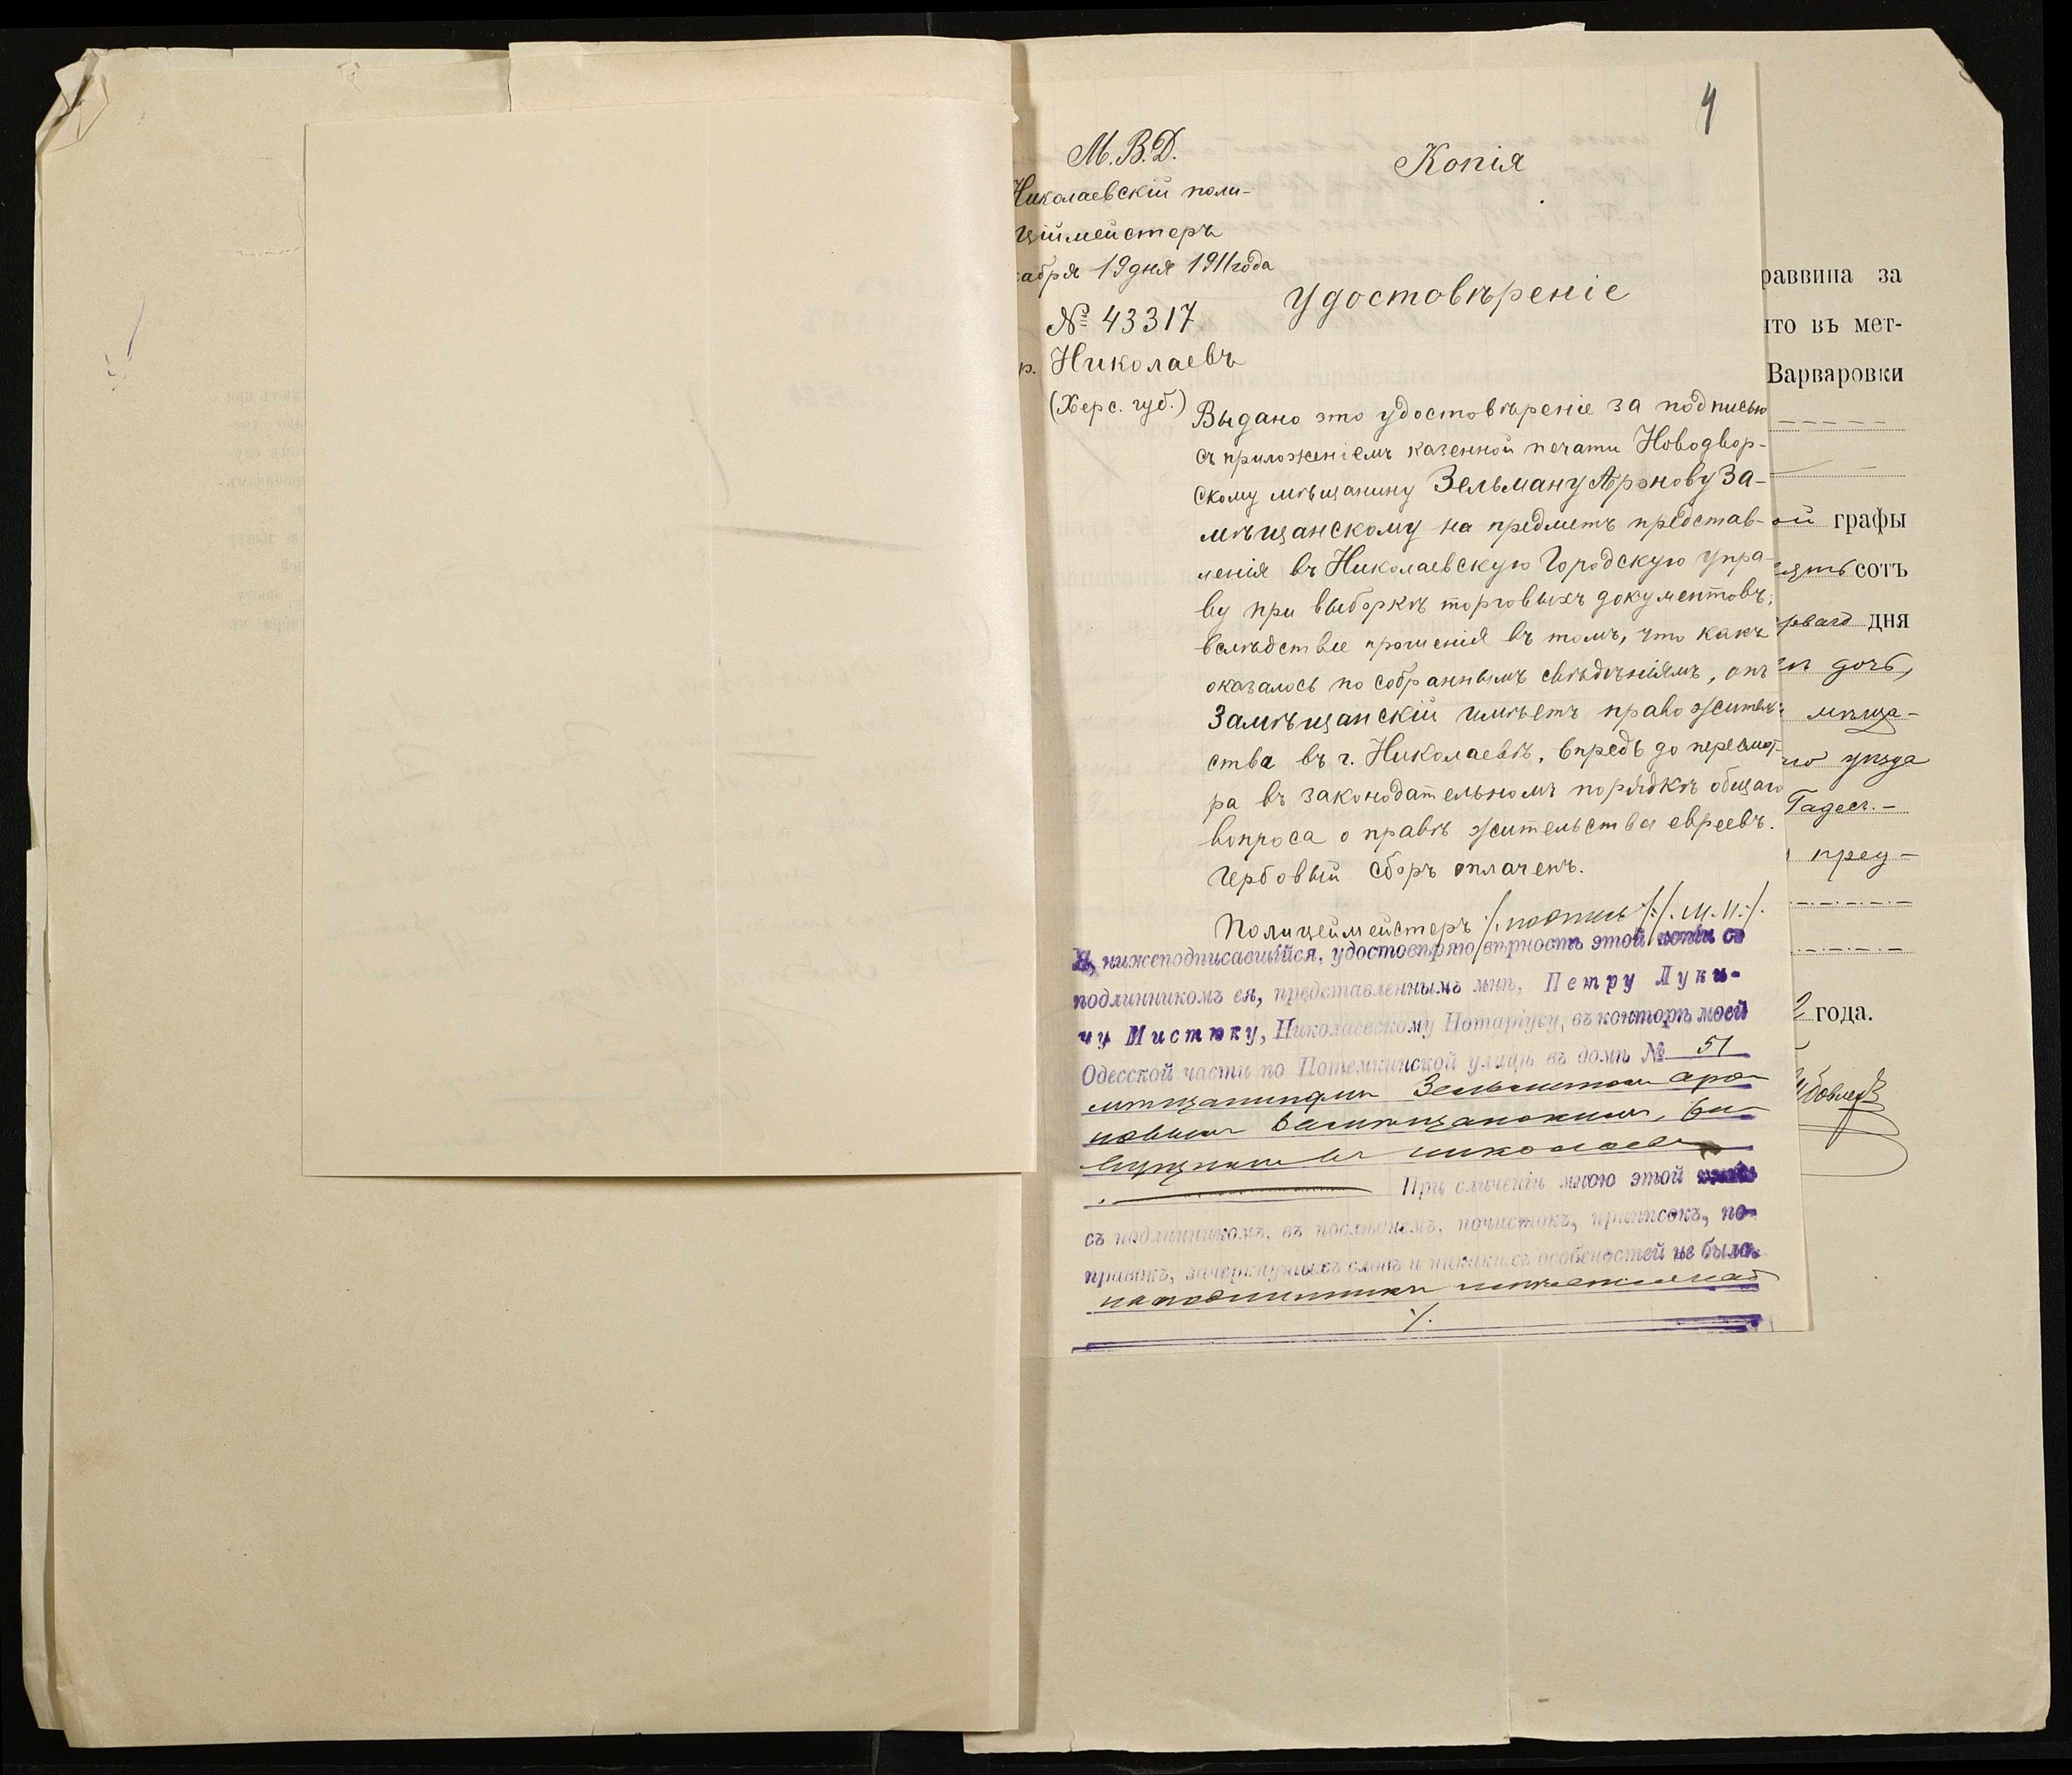 4
М.В.Д.
Копія
Николаевскій поли-
ціймейстеръ
кабря 19 дня 1911 года
Удостовѣреніе
№ 43317
р. Николаевъ
(Херс. губ.)
Выдано это удостовѣреніе за подписью
съ приложеніемъ казенной печати Новодвор-
скому мѣщанину Зельману Аронову За-
мѣщанскому на предметъ представ-
ленія въ Николаевскую Городскую Упра-
ву при выборкѣ торговыхъ документовъ,
вслѣдствіе прошенія въ томъ, что какъ
оказалось по собраннымъ свѣдѣніямъ, онъ
Замѣщанскій имѣетъ право житель-
ства въ г. Николаевѣ, впредь до пересмот-
ра въ законодательномъ порядкѣ общаго
вопроса о правѣ жительства евреевъ.
Гербовый сборъ оплаченъ.
Полицеймейстеръ /подпись/ /М.П./.
Я, нижеподписавшійся, удостовѣряю вѣрность этой копіи съ
подлинникомъ ея, представленнымъ мнѣ, Петру Луки-
чу Мистюку, Николаевскому Нотаріусу, въ конторѣ моей
Одесской части по Потемкинской улицѣ въ домѣ № 51
мѣщаниномъ Зельманомъ Аро-
новымъ Замѣщанскимъ, жи-
вущимъ въ Николаевѣ
При сличеніи мною этой копіи
съ подлинникомъ, въ послѣднемъ, почистокъ, приписокъ, по-
правокъ, зачеркнутыхъ словъ и никакихъ особенностей не было.
на подлинникѣ
раввина за
что въ мет-
Варваровки
ой графы
сотъ
перваго дня
дочь,
мѣща-
го уѣзда
Гадесъ.-
пред-
2 года.